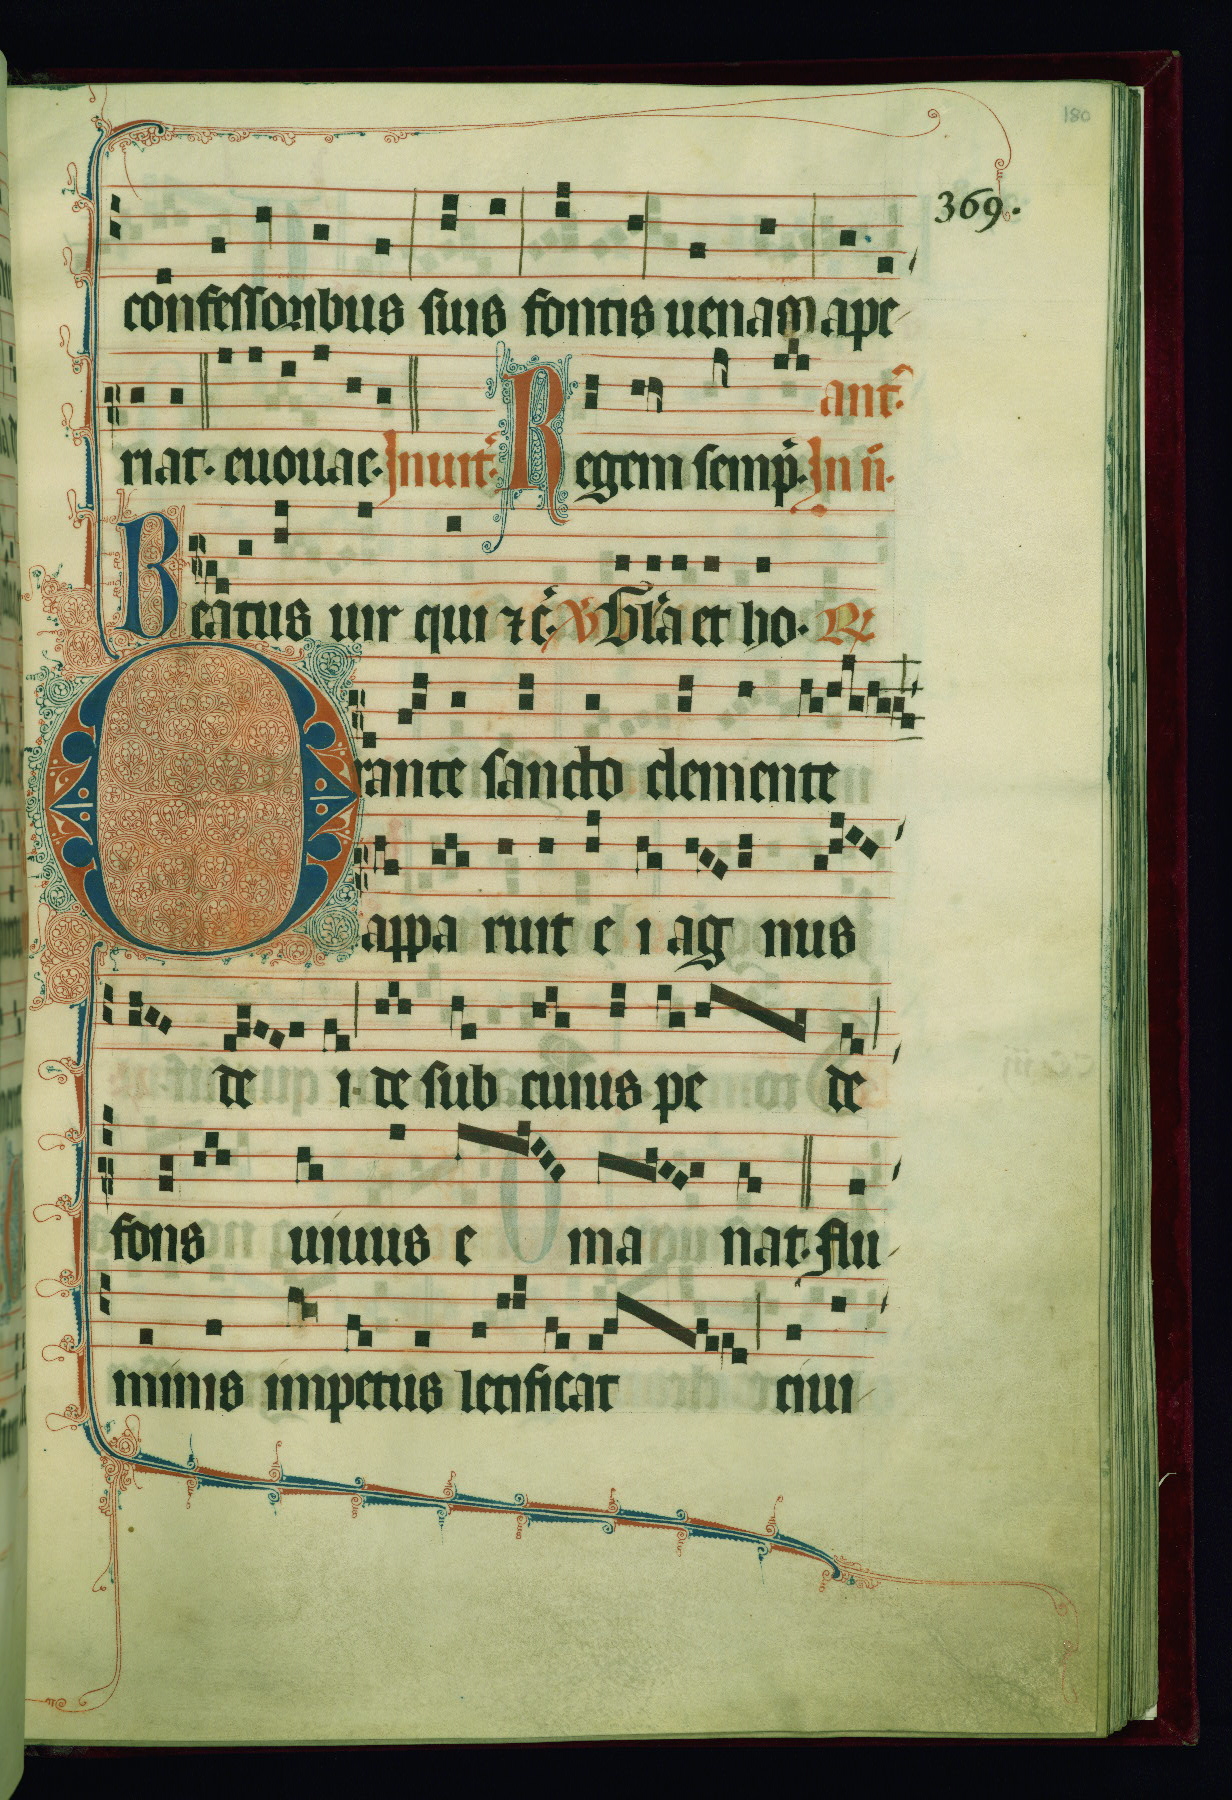 180
369.
confessoribus suis fontis uenam ape
riat. euouae. Inuit. Regem semp. In ii. ant.
Beatus uir qui ⁊ c̄. V Gl'a et ho. R
Orante sancto clemente
appa ruit e i ag nus
de i. de sub cuius pe de
fons uiuus e ma nat. Flu
minis impetus letificat ciui